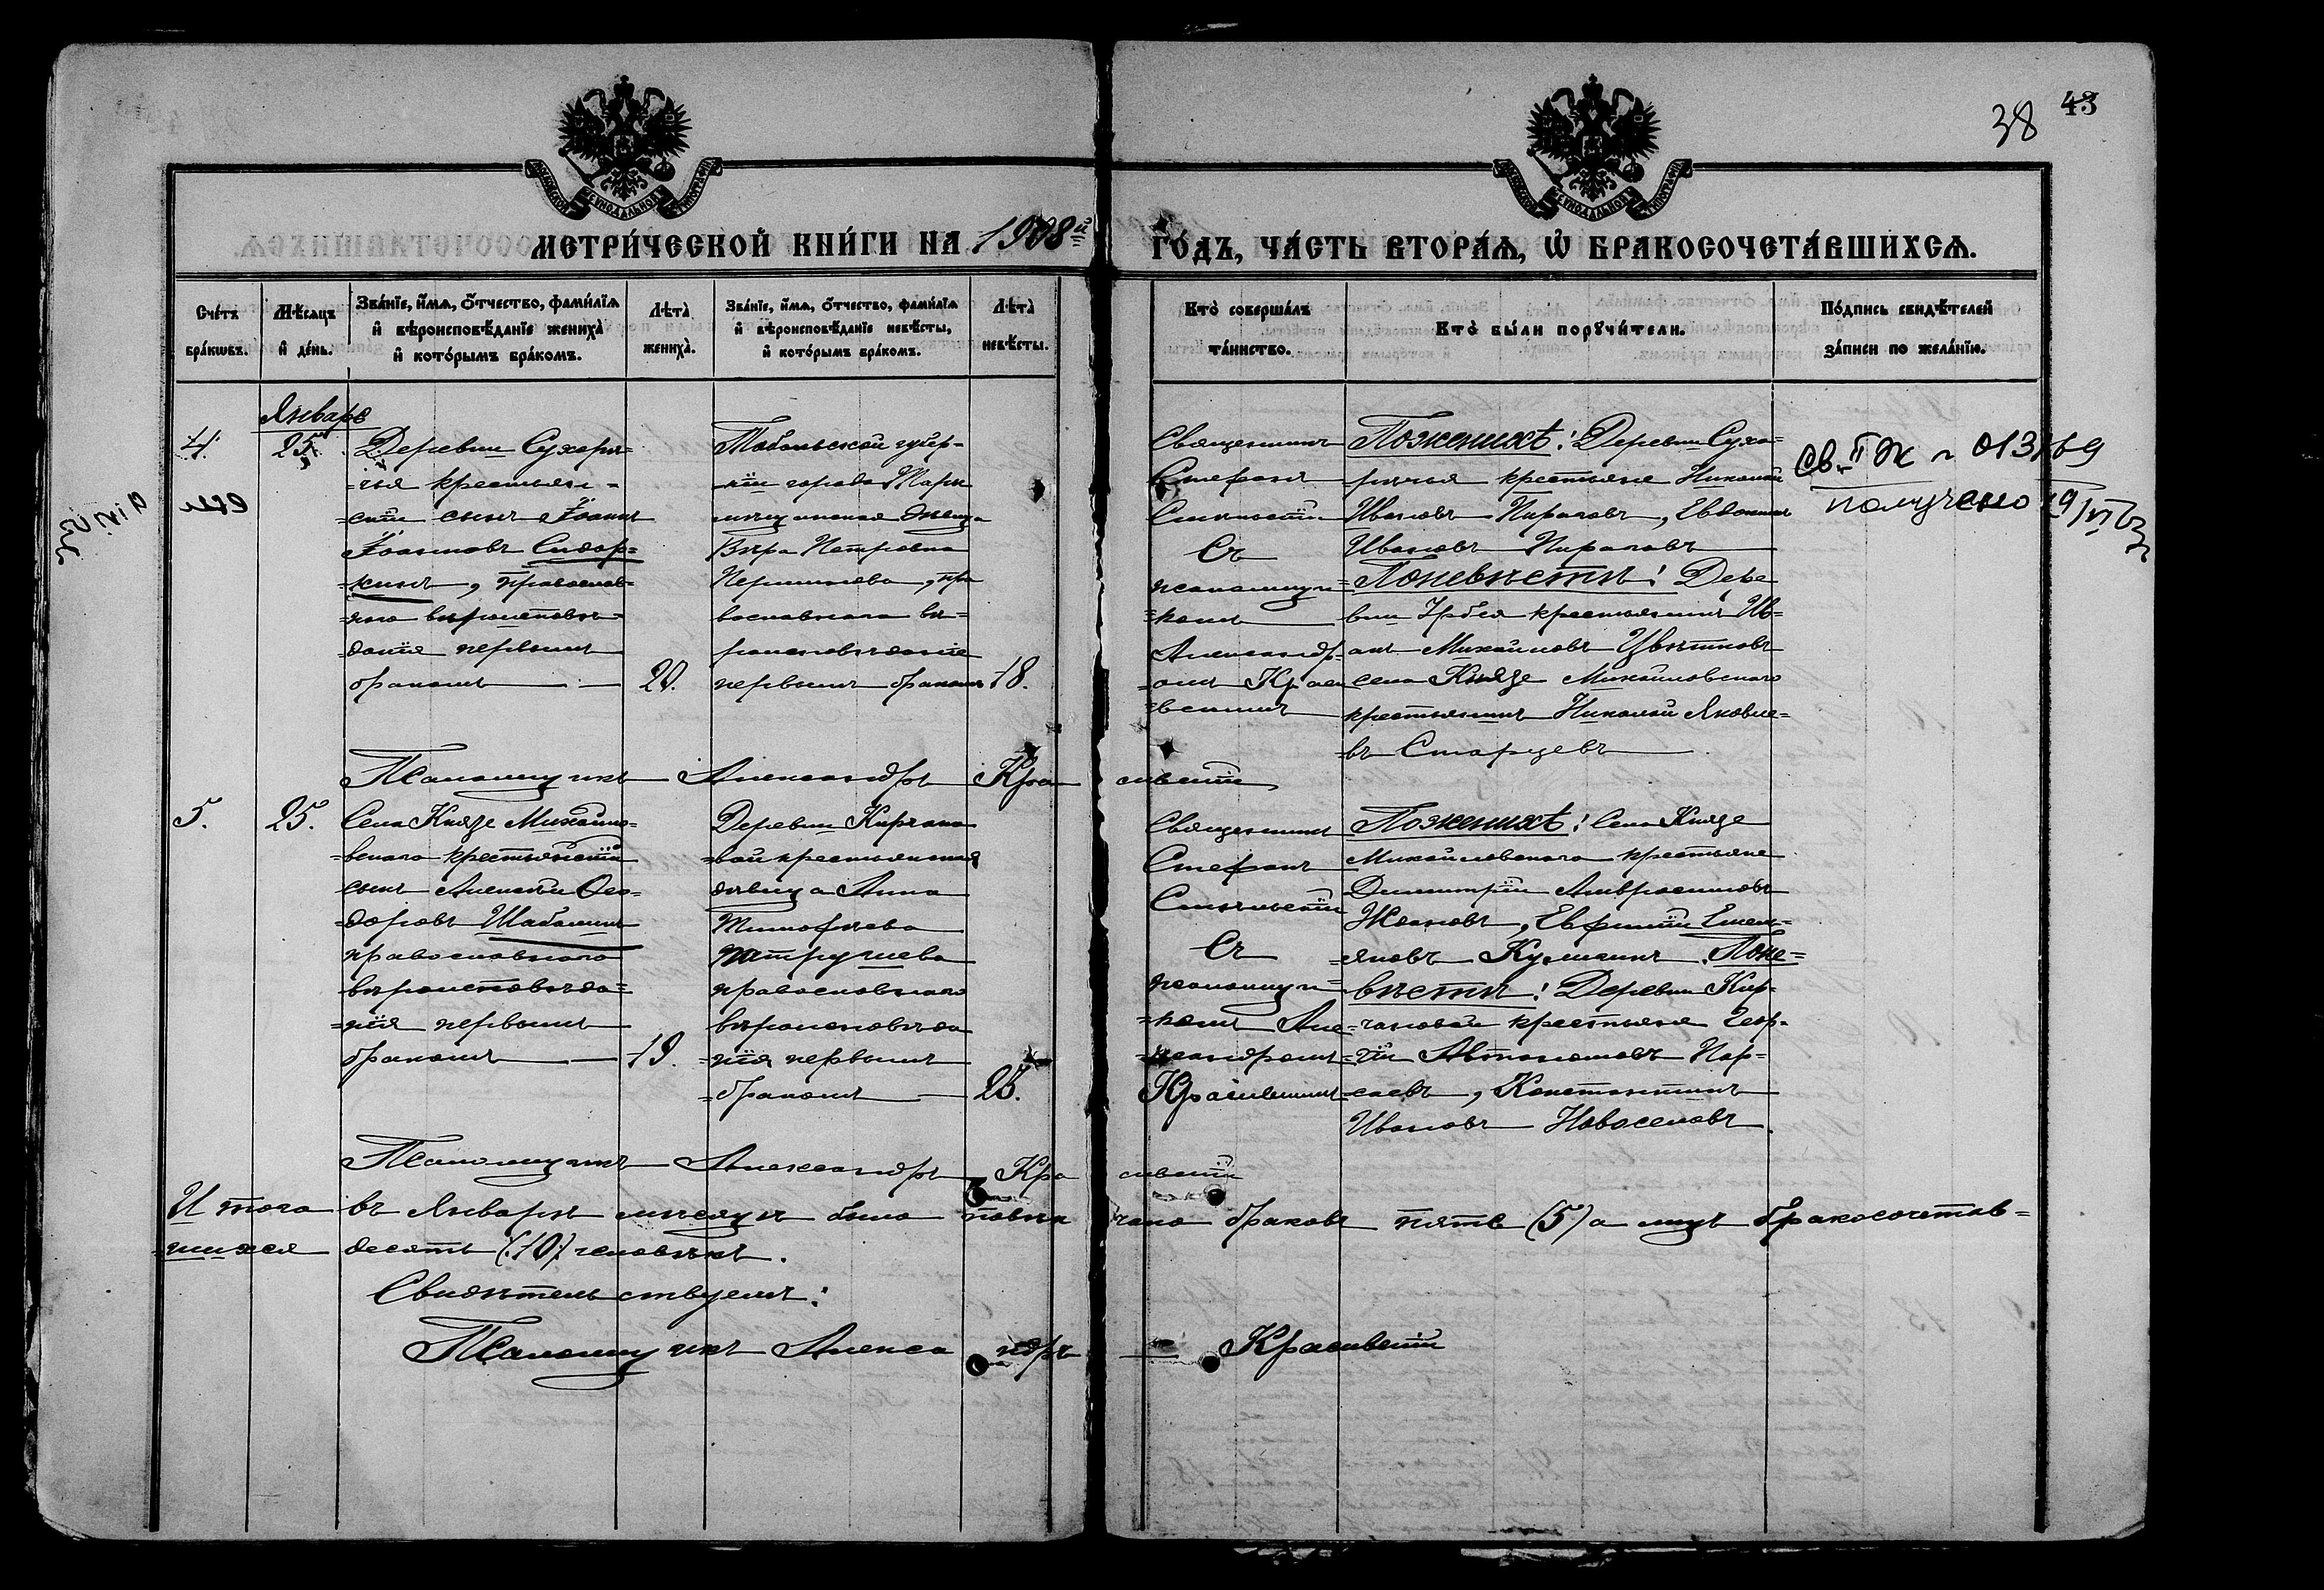 38 43
МОСКОВСКОЙ СѴНОДАЛЬНОЙ ТИПОГРАФІИ
МОСКОВСКОЙ СѴНОДАЛЬНОЙ ТИПОГРАФІИ
МЕТРИ́ЧЕСКОЙ КНИ́ГИ НА 1908й ГО́ДЪ, ЧА́СТЬ ВТОРА́Ѧ, Ѽ БРАКОСОЧЕТА́ВШИХСѦ.
Сче́тъ
бра́кѡвъ.
Мѣ́сѧцъ
и҆ де́нь.
Зва́нїе, и҆́мѧ, ѻ҆́тчество, фами́лїѧ
и҆ вѣроисповѣ́данїе жениха̀
и҆ кото́рымъ бра́комъ.
Лѣта̀
жениха̀.
Зва́нїе, и҆́мѧ, ѻ҆́тчество, фами́лїѧ
и҆ вѣроисповѣ́данїе невѣ́сты,
и҆ кото́рымъ бра́комъ.
Лѣта̀
невѣ́сты.
Кто̀ соверша́лъ
та́инство.
Кто̀ бы́ли порꙋчи́тели.
По́дпись свидѣ́телей
за́писи по жела́нїю.
Январь
4.
25.
Деревни Сухери=
=чья крестьян=
=скій сынъ Іоаннъ
Іоанновъ Сидор=
=кинъ, православ=
=наго вѣроисповѣ=
=данія первымъ
бракомъ
20.
Тобольской губер=
=ніи города Тары
мѣщанская дѣвица
Вѣра Петровна
, пра
вославнаго вѣ=
роисповѣданіе
первымъ бракомъ
18.
Священникъ
Стефанъ
Съ
псаломщи=
=комъ
Александр=
=омъ Краси
=вскимъ
Поженихѣ: Деревни Сухе=
=ричья крестьяне Николай
Ивановъ , Евдокимъ
Ивановъ
Поневѣстѣ: Дере
вни Ирбея крестьянинъ Ив=
анъ Михайловъ Цвѣтковъ
села Князе Михайловскаго
крестьянинъ Николай Яковле=
въ Старцевъ
Св. II Ж № 013169
получено 19/VI
Псаломщикъ Александръ Красивскій
5.
25.
Села Князе Михайло=
=вскаго крестьянскій
сынъ Алексѣй Ѳео=
=доровъ Шабалинъ
православнаго
вѣроисповѣда=
=нія первымъ
бракомъ
19.
Деревни Кирчано
=вой крестьянская
дѣвица Анна
Тимофѣева
Патрушева
православнаго
вѣроисповѣда
=нія первымъ
=бракомъ
26.
Священникъ
Стефанъ
Съ
псаломщи=
=комъ Але=
=ксандромъ
Красивскимъ
Поженихѣ: Села Князе
Михайловскаго крестьяне
Димитрій Амвросимовъ
Жвановъ, Евфимій Емель=
=яновъ Кузминъ. Поне=
вѣстѣ: Деревни Кир=
=чановой крестьяне Геор=
=гій Автономовъ Пер=
=саевъ, Константинъ
Ивановъ Новоселовъ.
Псаломщикъ Александръ Красивскій
Итого въ Январѣ мѣсяцѣ было повѣнчано браковъ пять (5) а лицъ бракосочетав=
=шихся десять (10) человѣкъ.
Свидѣтельствуемъ:
Псаломщикъ Александръ Красивскій